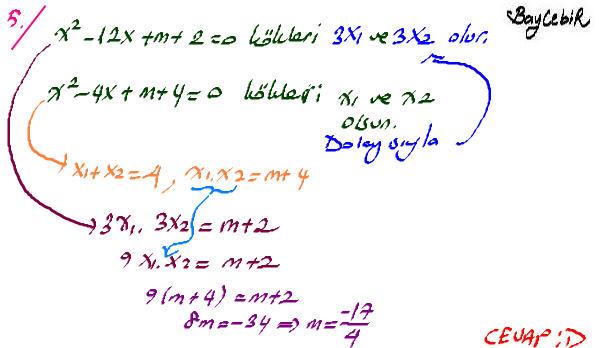 5.
BayCebiR
x² - 12x + m + 2 = 0 kökleri 3x₁ ve 3x₂ olur.
x² - 4x + m + 4 = 0 kökleri x₁ ve x₂
olsun.
Dolayısıyla
x₁ + x₂ = 4, x₁.x₂ = m + 4
3x₁. 3x₂ = m + 2
9 x₁.x₂ = m + 2
9(m + 4) = m + 2
8m = -34 ⇒ m = -17/4
CEVAP : D